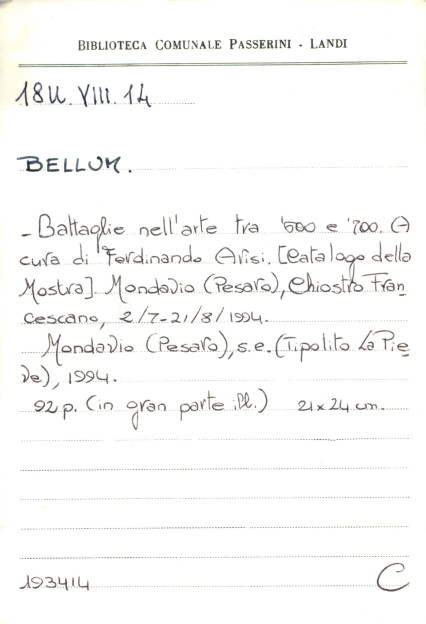 BIBLIOTECA COMUNALE PASSERINI - LANDI
18U.VIII.14
BELLUM.
- Battaglie nell'arte tra '600 e '700. (A
cura di Ferdinando Arisi. [Catalogo della
Mostra]. Mondavio (Pesaro), Chiostro Fran
cescano, 2/7-21/8/1994.
Mondavio (Pesaro), s.e. (Tipolito La Pie
ve), 1994.
92 p. (in gran parte ill.) 21x24 cm.
193414 C